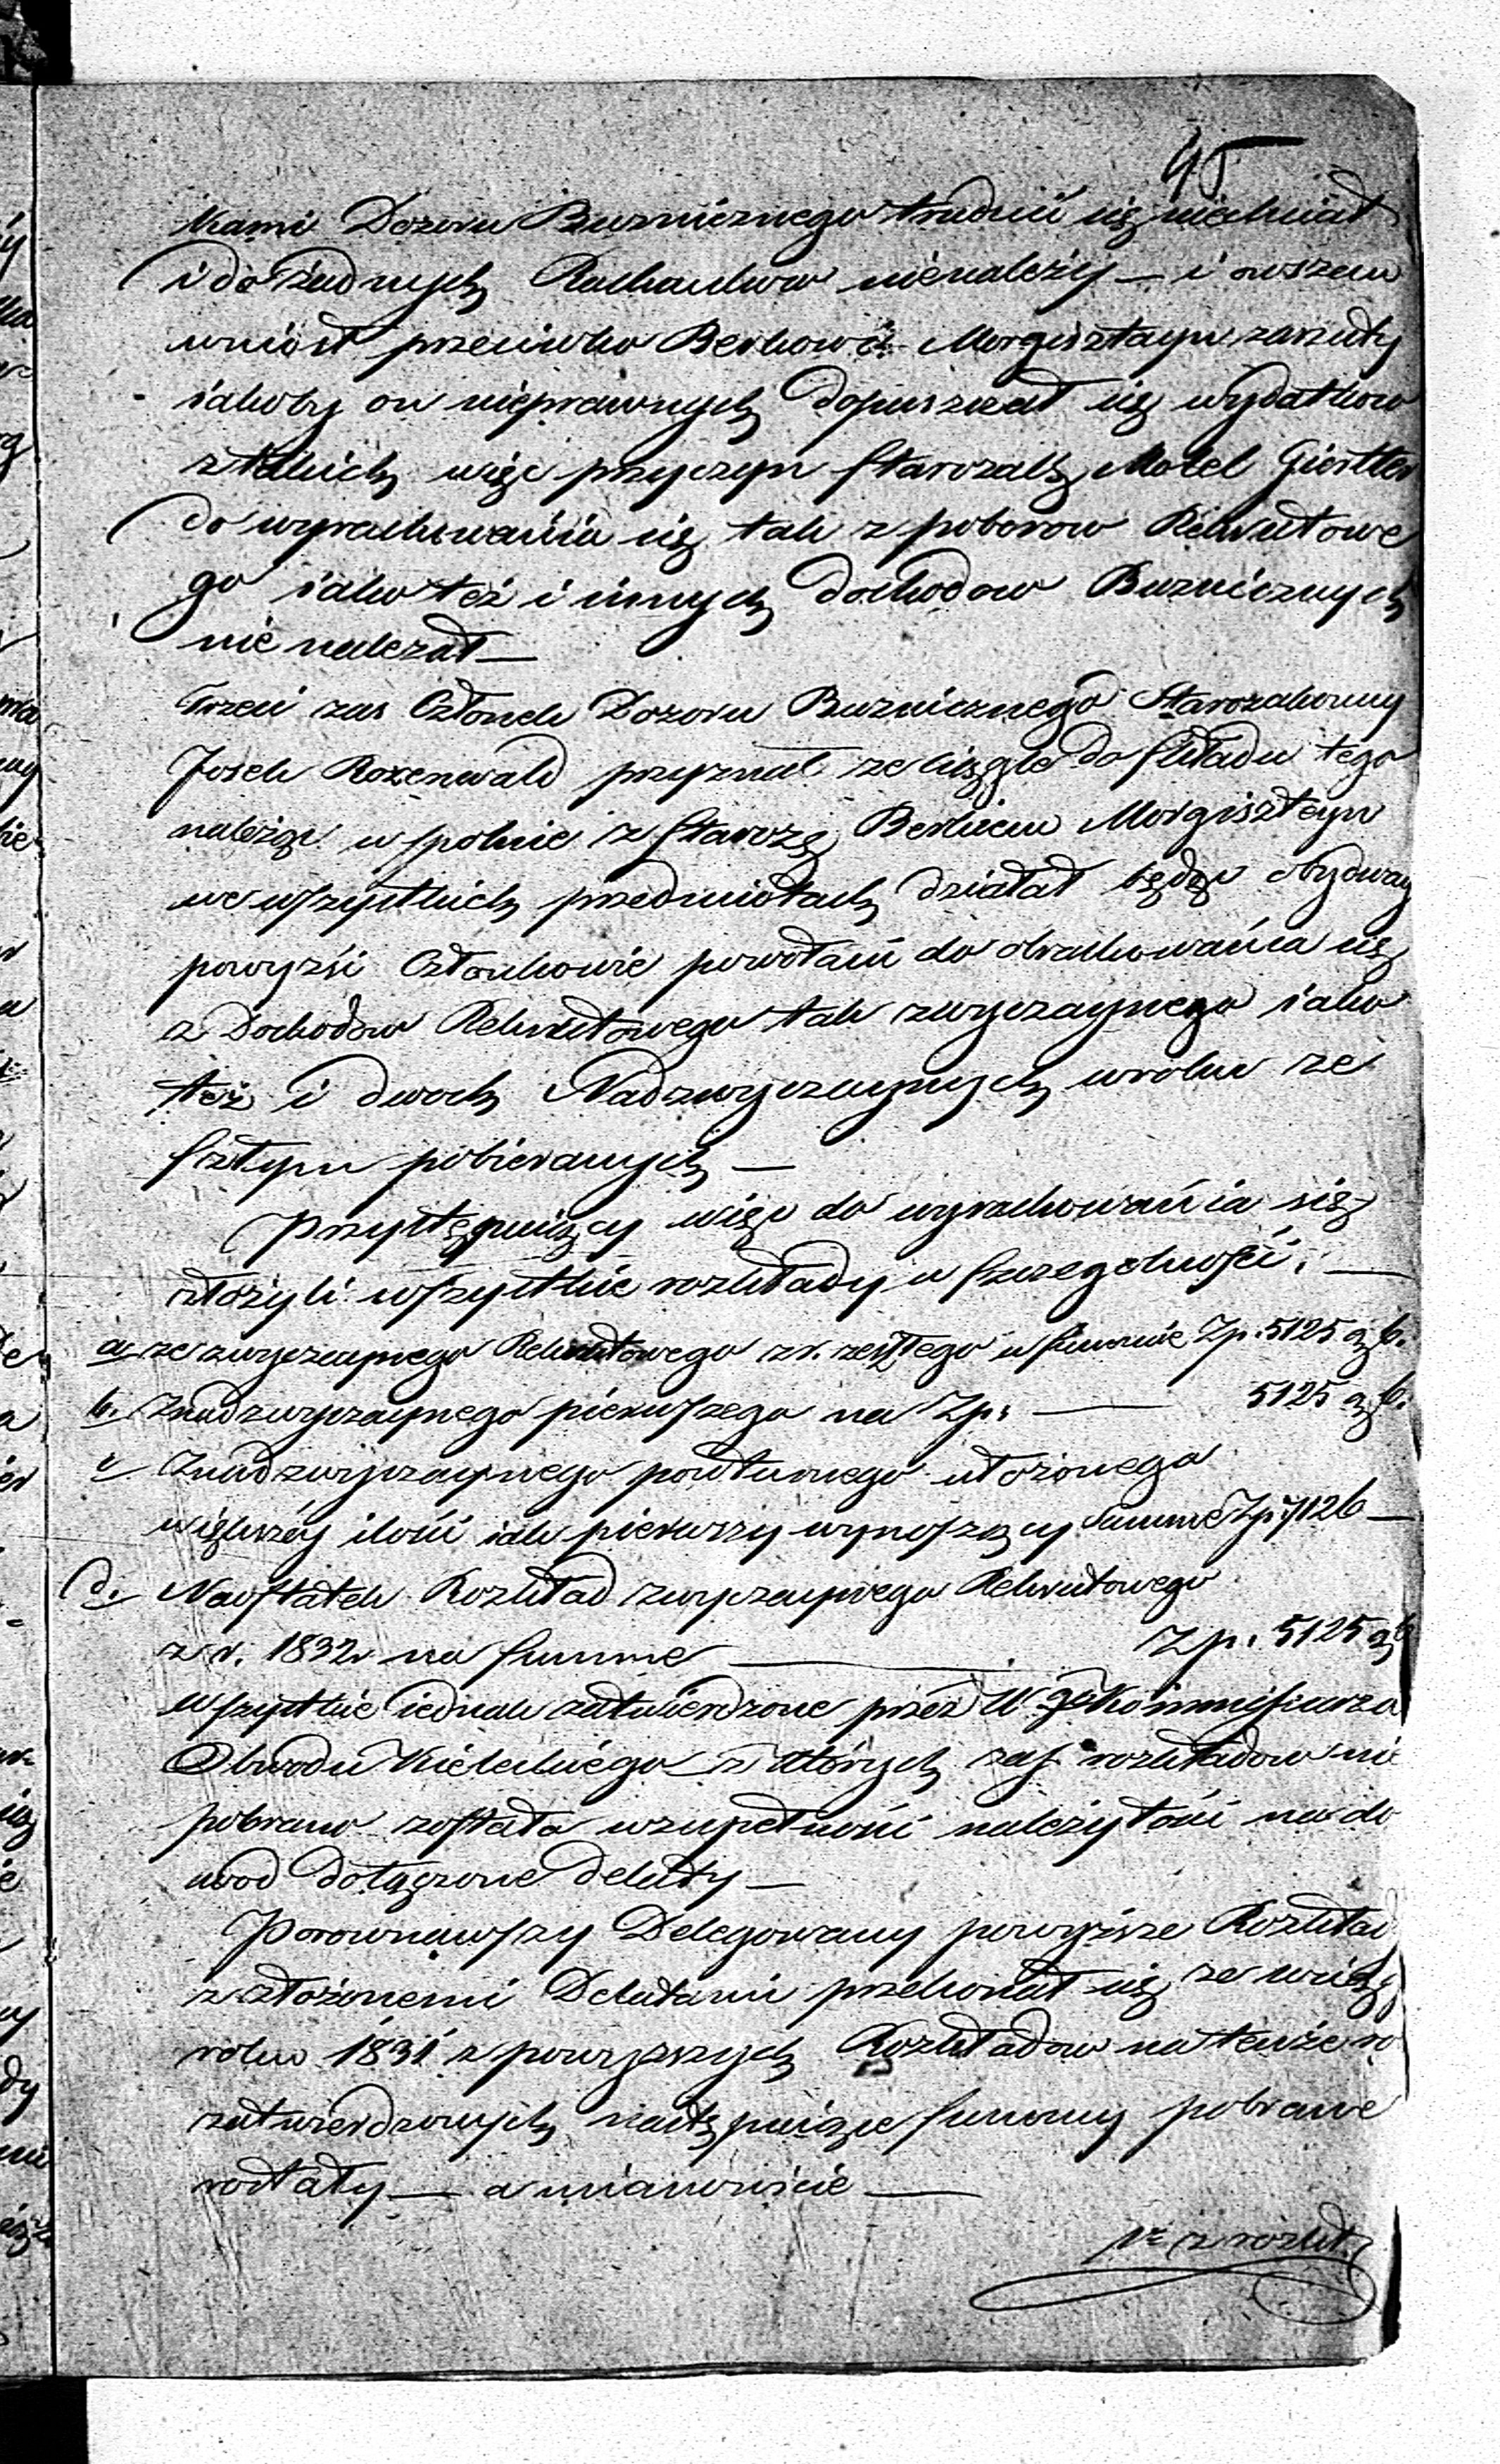 45
kami Dozoru Buzniczego trudnić się niechciał
i do żadnych Rachunkow nienależy — i owszem
wniosł przeciwko Berkowi Morgisztayn zarzuty
iakoby on nieprawnych dopuszczał się wydatkow
z takich więc przyczyn Starozak. Motel Giertler
do wyrachowania się tak z poborow Rekrutowe
go iako też i innych dochodow Buzniczych
nie należał —
Trzeci zas Członek Dozoru Buznicznego Starozakonny
Josek Rozenwald przyznał ze ciągle do składu tego
należąc wspolnie z Staroz. Berkiem Morgiszteyn
we wszystkich przedmiotach działał będąc obydway
powyżsi Członkowie powołani do obrachowania się
z Dochodow Rekrutowego tak zwyczaynego iako
też i dwoch Nadzwyczaynych w roku ze
szłym pobieranych —
Przystępuiący więc do wyrachowania się
złożyli wszystkie rozkłady w szczegolności: —
a ze zwyczaynego Rekrutowego z r. zeszłego w summie Zp. 5125 g 6.
b. Z nadzwyczaynego pierwszego na Zp: — 5125 g 6.
c Z nadzwyczaynego powturnego ułożonego
większéy ilości iak pierwszy wynoszący Summę Zp. 7126 —
d. Naostatek Rozkład zwyczaynego Rekrutowego
z r. 1832 na summę — Zp. 5125 g 6
wszystkie iednak zatwierdzone przez W go Kommissarza
Obwodu Kieleckiego z których zas rozkładow nie
pobrano została wzupełności należytość na do
wod dołączone delaty —
Porownawszy Delegowany powyższe Rozkłady
z złożonemi Delatami przekonał się ze w ciągu
roku 1831 z powyższych Rozkładow na tenże ro
zatwierdzonych następuiące summy pobrane
zostały — a mianowicie —
z rozkł.